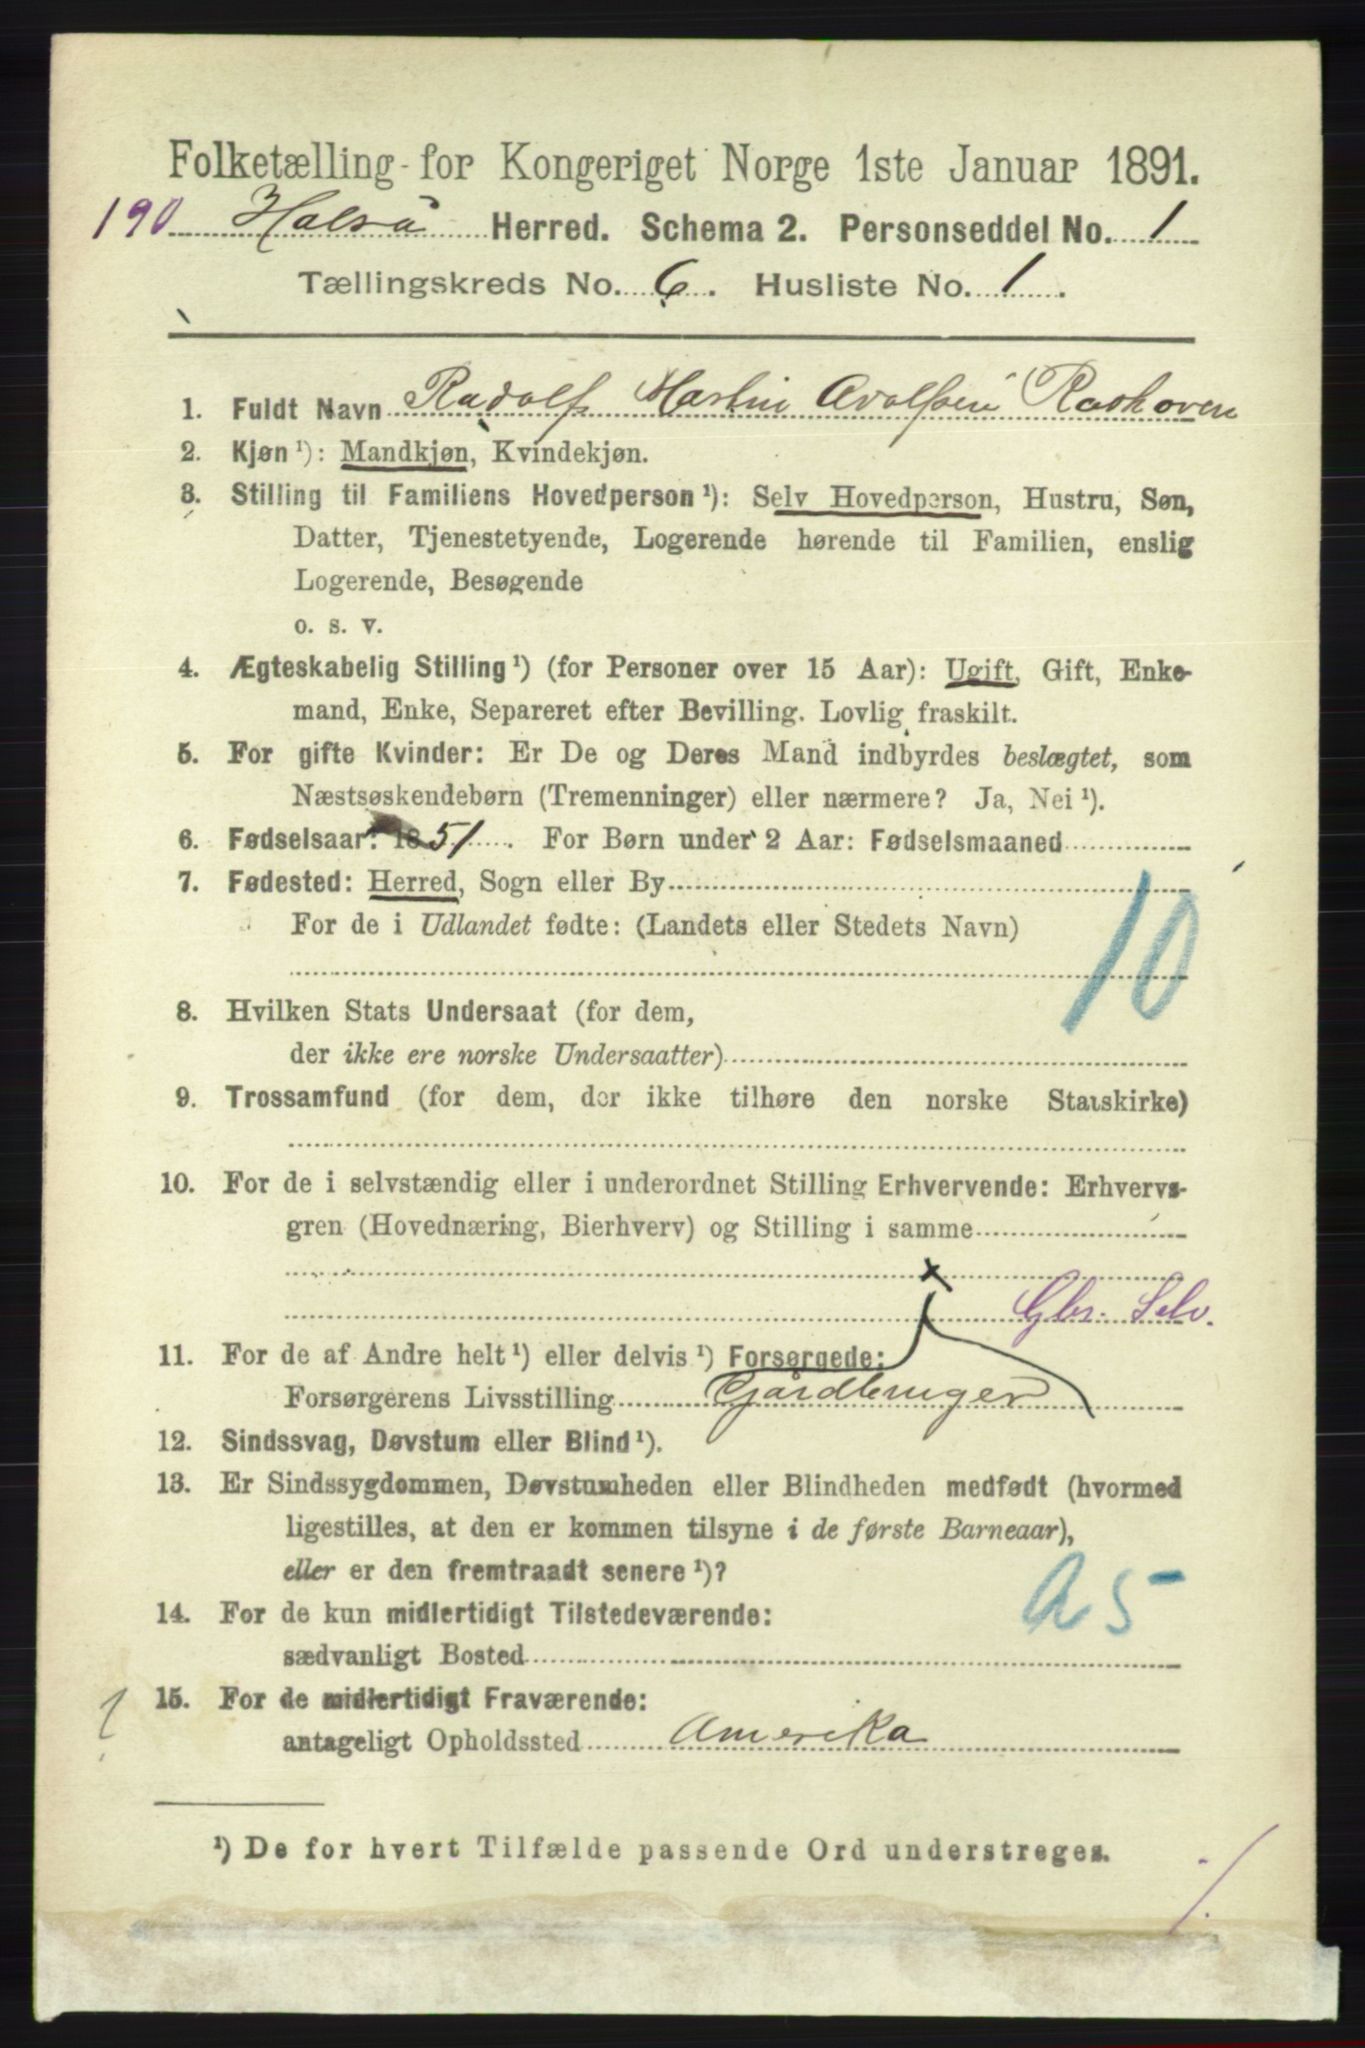 Folketælling for Kongeriget Norge 1ste Januar 1891.
190 Halså Herred. Schema 2. Personseddel No. 1
Tællingskreds No. 6. Husliste No. 1.
1. Fuldt Navn Radolf Martin Adolfsen
2. Kjøn ¹): Mandkjøn, Kvindekjøn.
3. Stilling til Familiens Hovedperson ¹): Selv Hovedperson, Hustru, Søn,
Datter, Tjenestetyende, Logerende hørende til Familien, enslig
Logerende, Besøgende
o. s. v.
4. Ægteskabelig Stilling ¹) (for Personer over 15 Aar): Ugift, Gift, Enke-
mand, Enke, Separeret efter Bevilling. Lovlig fraskilt.
5. For gifte Kvinder: Er De og Deres Mand indbyrdes beslægtet, som
Næstsøskendebørn (Tremenninger) eller nærmere? Ja, Nei ¹).
6. Fødselsaar: 1851. For Børn under 2 Aar: Fødselsmaaned
7. Fødested: Herred, Sogn eller By
For de i Udlandet fødte: (Landets eller Stedets Navn)
10
8. Hvilken Stats Undersaat (for dem,
der ikke ere norske Undersaatter)
9. Trossamfund (for dem, der ikke tilhøre den norske Statskirke)
10. For de i selvstændig eller i underordnet Stilling Erhvervende: Erhvervs-
gren (Hovednæring, Bierhverv) og Stilling i samme
x
Gbr. Selv.
11. For de af Andre helt ¹) eller delvis ¹) Forsørgede:
Forsørgerens Livsstilling Gårdbruger
12. Sindssvag, Døvstum eller Blind ¹).
13. Er Sindssygdommen, Døvstumheden eller Blindheden medfødt (hvormed
ligestilles, at den er kommen tilsyne i de første Barneaar),
eller er den fremtraadt senere ¹)?
a 5
14. For de kun midlertidigt Tilstedeværende:
sædvanligt Bosted
15. For de midlertidigt Fraværende:
antageligt Opholdssted Amerika
¹) De for hvert Tilfælde passende Ord understreges.